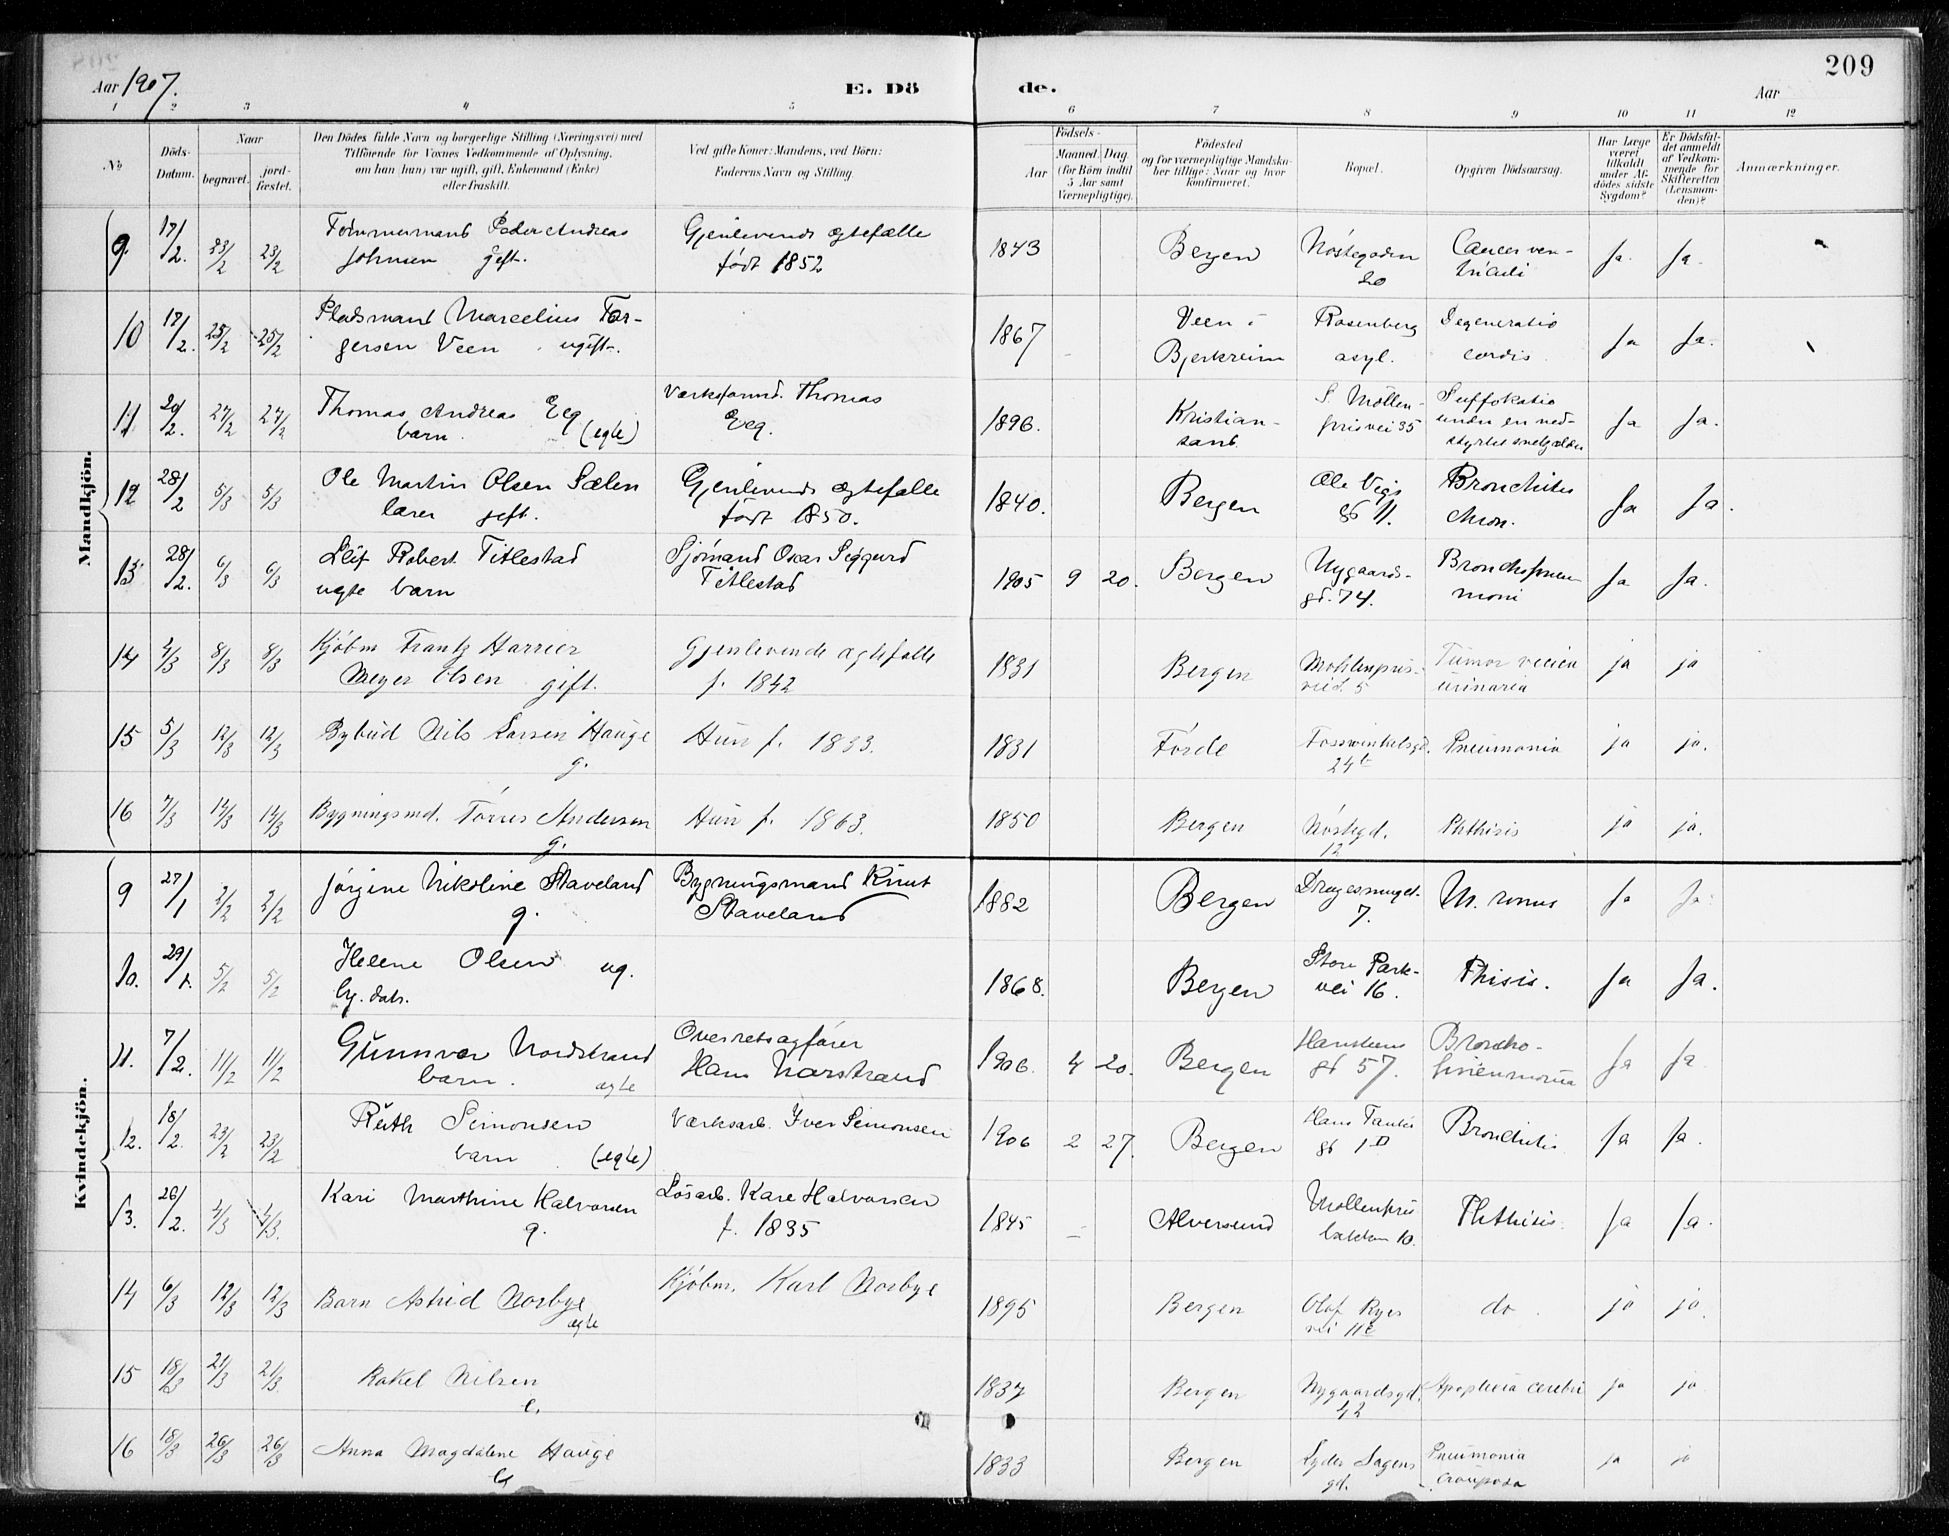 209
Aar 1907.
E. Dö
de.
Aar
1 2 3 4 5 6 7 8 9 10 11 12
No
Döds-Datum.
Naar
begravet.
jord-fæstet.
Den Dödes fulde Navn og borgerlige Stilling (Næringsvei) med
Tilföiende for Voxnes Vedkommende af Oplysning,
om han (hun) var ugift, gift, Enkemand (Enke)
eller fraskilt.
Ved gifte Koner: Mandens, ved Börn:
Faderens Navn og Stilling.
Födsels-
Aar
Maaned. Dag.
(for Börn indtil
5 Aar samt
Værnepligtige).
Födested
og for værnepligtige Mandska-
ber tillige: Naar og hvor
konfirmeret.
Bopæl.
Opgiven Dödsaarsag.
Har Læge
været
tilkaldt
under Af-
dödes sidste
Sygdom?
Er Dödsfal-
det anmeldt
af Vedkom-
mende for
Skifteretten
(Lensman-
den)?
Anmærkninger.
Mandkjön.
9. 17/2. 23/2 23/2 Tømmermand Peder Andreas
Johnsen gift.
Gjenlevende ægtefælle
født 1852
1843 Bergen Nøstegaden
20
Cancer ven-
triculi
Ja. Ja.
10 17/2. 25/2 25/2 Pladsmand Marcelius Tor-
gersen Veen ugift.
1867 Veen i
Bjerkreim
Rosenberg
asyl.
Degeneratio
cordis
Ja Ja.
11 20/2. 27/2 27/2 Thomas Andreas Eeg
barn. (egte)
Værksformd. Thomas
Eeg.
1896. Kristian-
sand.
S Møllen-
prisvei 35
Suffokatio
under en ned-
styrtet
Ja Ja.
12 28/2 5/3 5/3 Ole Martin Olsen Sælen
lærer gift.
Gjenlevende ægtefælle
født 1850.
1840. Bergen Ole Vigs
gd 11.
Bronchitis
chron.
Ja Ja.
13 28/2. 6/3 6/3 Leif Robert Titlestad
uegte barn
Sjømand Oscar Siggurd
Titlestad
1905 9 20. Bergen Nygaards-
gd. 74.
Bronchopneu-
moni
Ja Ja.
14 4/3 8/3 8/3 Kjøbm Frantz
Meyer Olsen gift.
Gjenlevende ægtefælle
f. 1842
1831 Bergen Møhlenpris-
veid. 5
Tumor vesica
urinaria
ja ja
15 5/3 12/3 12/3 Bybud Nils Larsen Hauge
g.
Hun f. 1833.
1831 Førde Fosswinkelsgd.
24b
Pneumonia
ja ja.
16 7/3 14/3 14/3 Bygningsmd. Tørres Andersen
g.
Hun f. 1863.
1850 Bergen Nøstegd.
12
Phthisis
ja ja.
Kvindekjön.
9 27/1 2/2 2/2 Jørgine Nikoline Staveland
g.
Bygningsmand Knut
Staveland
1882 Bergen Dragesmuget.
7.
Ja Ja.
10. 29/1. 5/2 5/2 Helene Olsen ug.
by. datr.
1868. Bergen Store Park-
vei 16.
Phisis.
Ja Ja.
11. 7/2. 11/2 11/2 Gunnvor Nordstrand
barn. ægte
Overretssagfører
Hans Narstrand
1906. 4 20. Bergen Hansteens
gd 57.
Broncho-
pneumonia
Ja Ja
12. 18/2. 23/2 23/2 Ruth Simonsen
barn (egte)
Værksarb. Iver Simonsen
1906 2 27. Bergen Hans Tanks
gd 1D
Bronchitis
Ja Ja.
13. 26/2. 4/3 4/3. Kari Marthine Halvorsen
g.
Løsarb. Kare Halvorsen
f. 1835
1845 Alversund Møllenpris
bakken 10.
Phthisis.
Ja Ja.
14 6/3 12/3 12/3 Barn Astrid Norbye
ægte
Kjøbm. Karl Norbye
1895 Bergen Olaf Ryes
vei 11c
do
ja ja.
15 18/3 21/3 21/3. Rakel Nilsen
e.
1837 Bergen Nygaardsgd.
42
Apoplexia cerebri
ja ja
16 18/3 26/3 26/3 Anna Magdalene Hauge
e.
1833 Bergen Lyder Sagens
gd.
Pneumonia
crouposa
ja ja